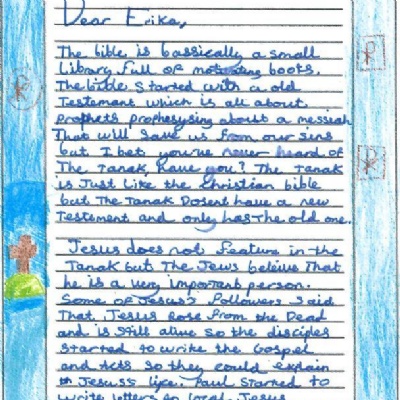 Dear Erika,
The bible is bassically a small
Library full of books.
The bible started with a old
Testement which is all about
prophets prophesysing about a messiah
That will save us from our sins
but I bet you've never heard of
The Tanak, have you? The Tanak
is Just like the christian bible
but The Tanak Dosent have a new
Testement and only has the old one.
Jesus does not feature in the
Tanak but The Jews beleive That
he is a very important person.
Some of Jesus's followers said
That Jesus rose from the Dead
and is still alive so the disciples
started to write the Gospel
and Acts so they could explain
Jesus's life. Paul started to
write letters to local Jesus